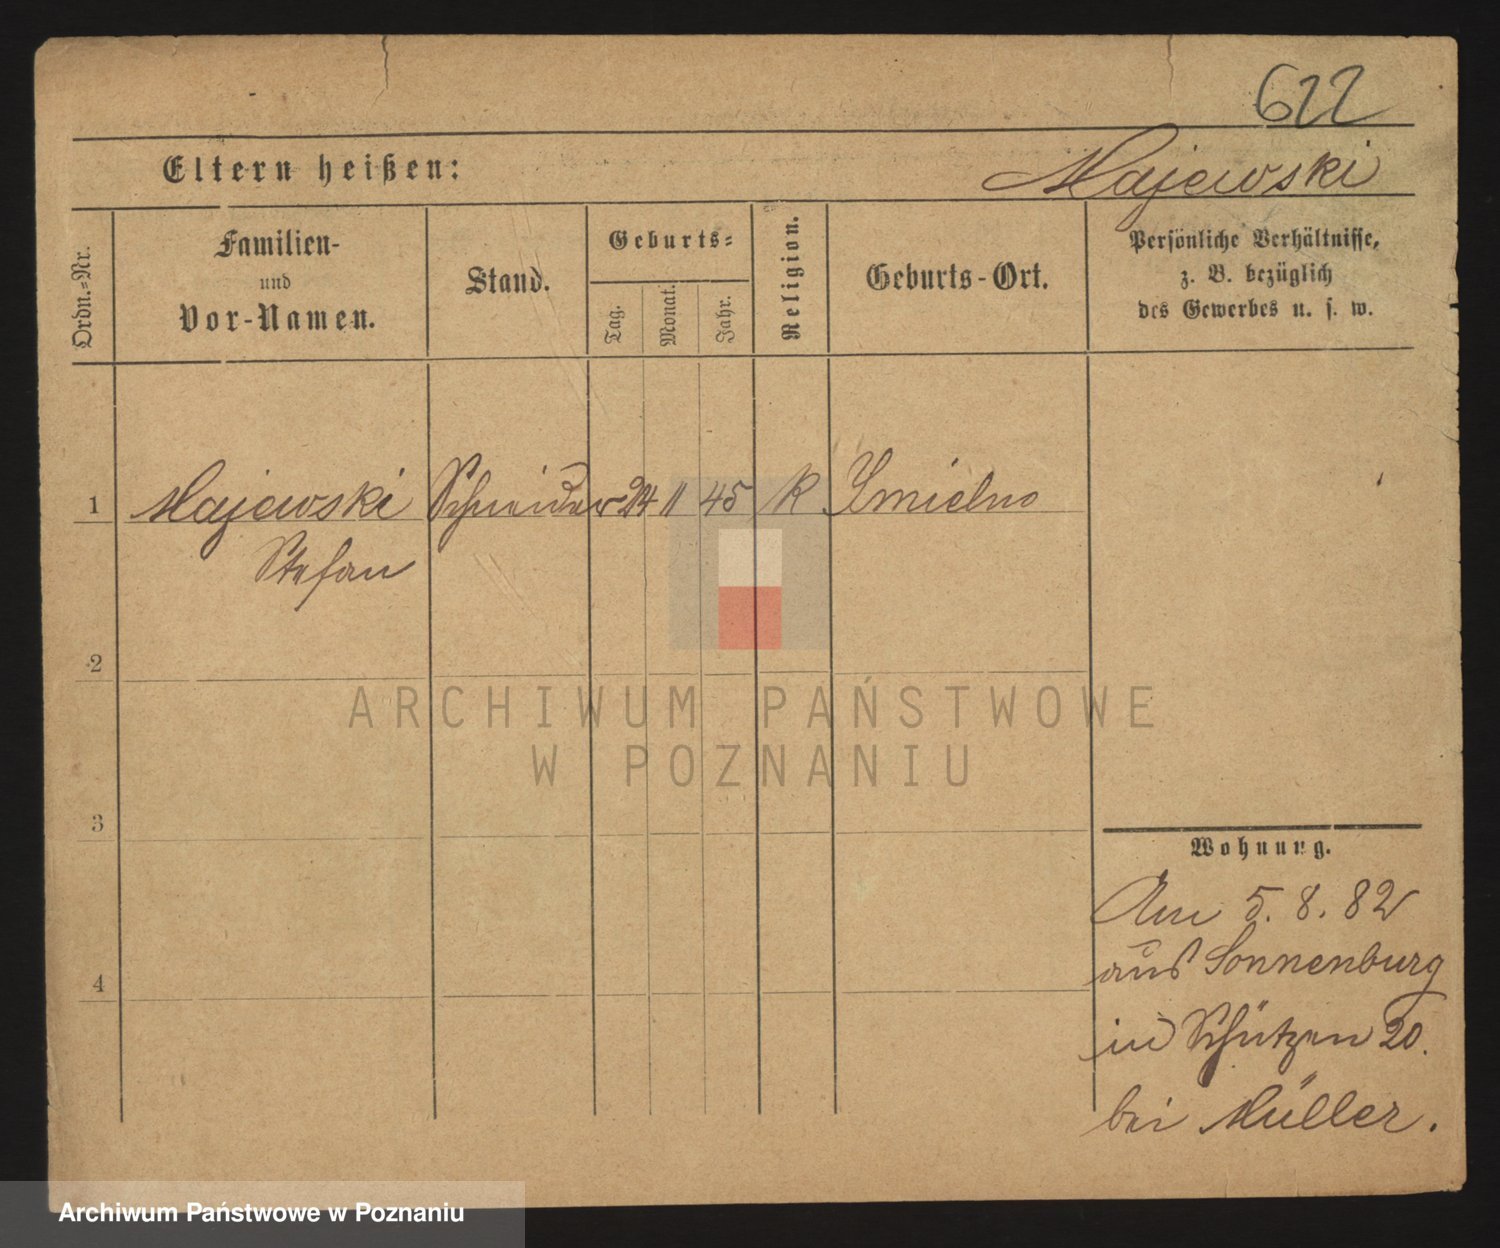 622
Eltern heißen:
Majewski
Ordn.=Nr.
Familien-
und
Vor-Namen.
Stand.
Geburts=
Tag.
Monat.
Jahr.
Religion.
Geburts-Ort.
Persönliche Verhältnisse,
z. B. bezüglich
des Gewerbes u. s. w.
1 Majewski Schneider 24 11 45 K Imielno
Stefan
2
ARCHIWUM PAŃSTWOWE
W POZNANIU
3
Wohnung.
Am 5. 8. 82
aus Sonnenburg
4
in Schützen 20.
bei Müller.
Archiwum Państwowe w Poznaniu